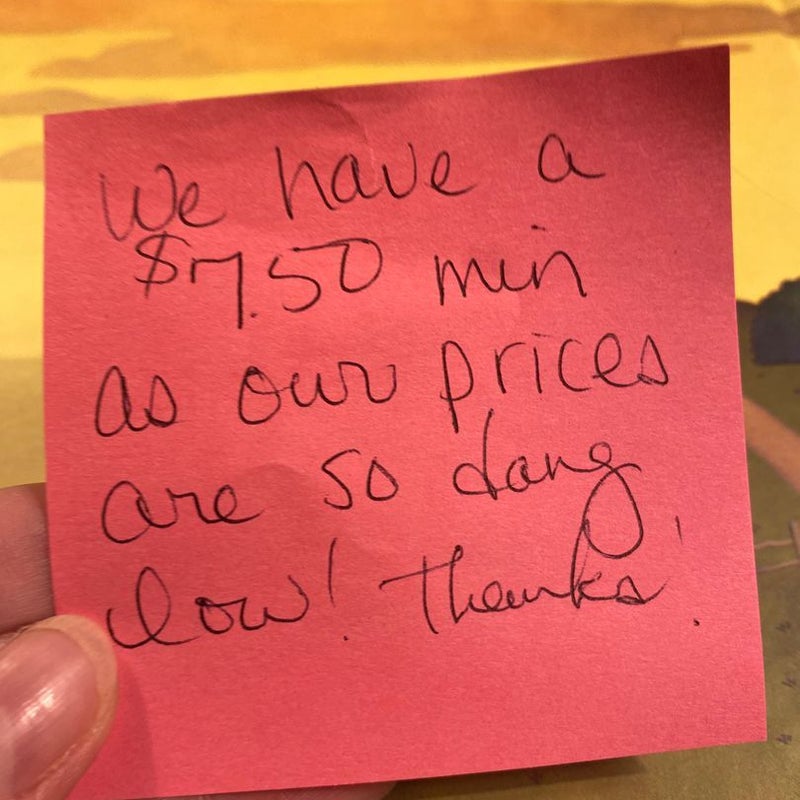 We have a
$7.50 min
as our prices
are so dang
low! Thanks!